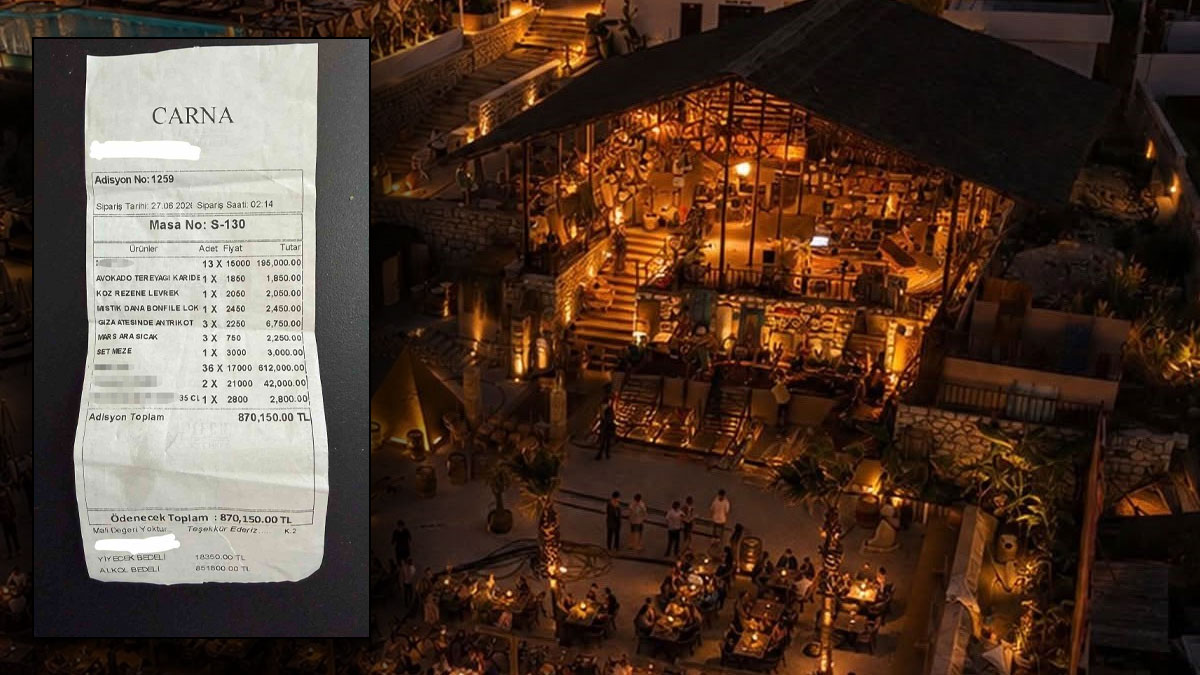 CARNA
Adisyon No: 1259
Sipariş Tarihi: 27.06.202 Sipariş Saati: 02:14
Masa No: S-130
Ürünler Adet Fiyat Tutar
13 X 15000 195,000.00
AVOKADO TEREYAGI KARIDE 1 X 1850 1,850.00
KOZ REZENE LEVREK 1 X 2050 2,050.00
MISTIK DANA BONFILE LOK 1 X 2450 2,450.00
GIZA ATESINDE ANTRIKOT 3 X 2250 6,750.00
MARS ARA SICAK 3 X 750 2,250.00
SET MEZE 1 X 3000 3,000.00
36 X 17000 612,000.00
2 X 21000 42,000.00
35 CL 1 X 2800 2,800.00
Adisyon Toplam 870,150.00 TL
Ödenecek Toplam : 870,150.00 TL
Mali Degeri Yoktur... Teşekkür Ederiz.... K.2
YİYECEK BEDELİ 18350.00 TL
ALKOL BEDELİ 851800.00 TL